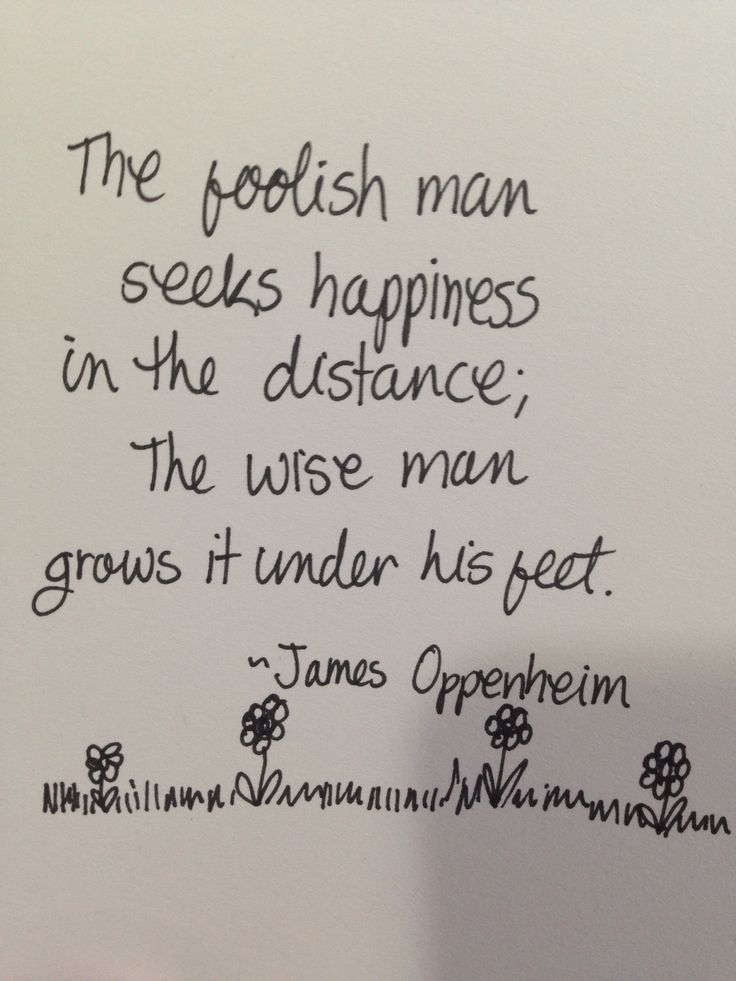 The foolish man
seeks happiness
in the distance;
The wise man
grows it under his feet.
~James Oppenheim